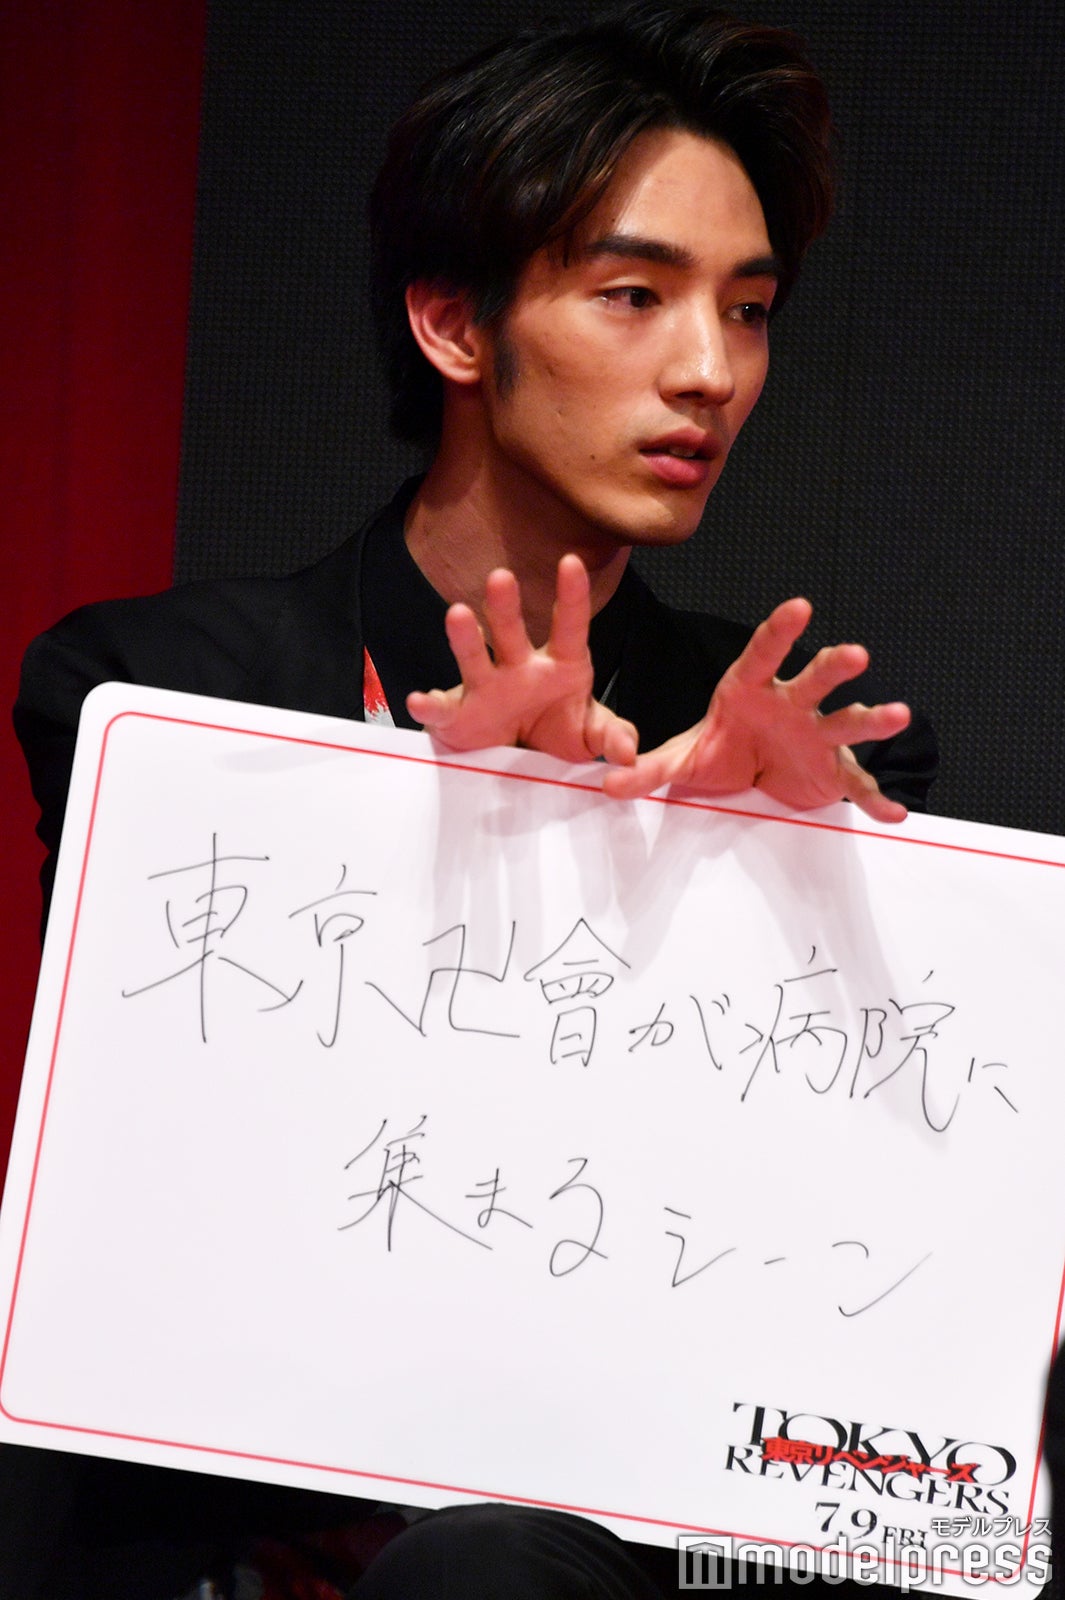 東京卍會が病院に
集まるシーン
TOKYO
東京リベンジャーズ
REVENGERS
7.9 FRI
モデルプレス
modelpress